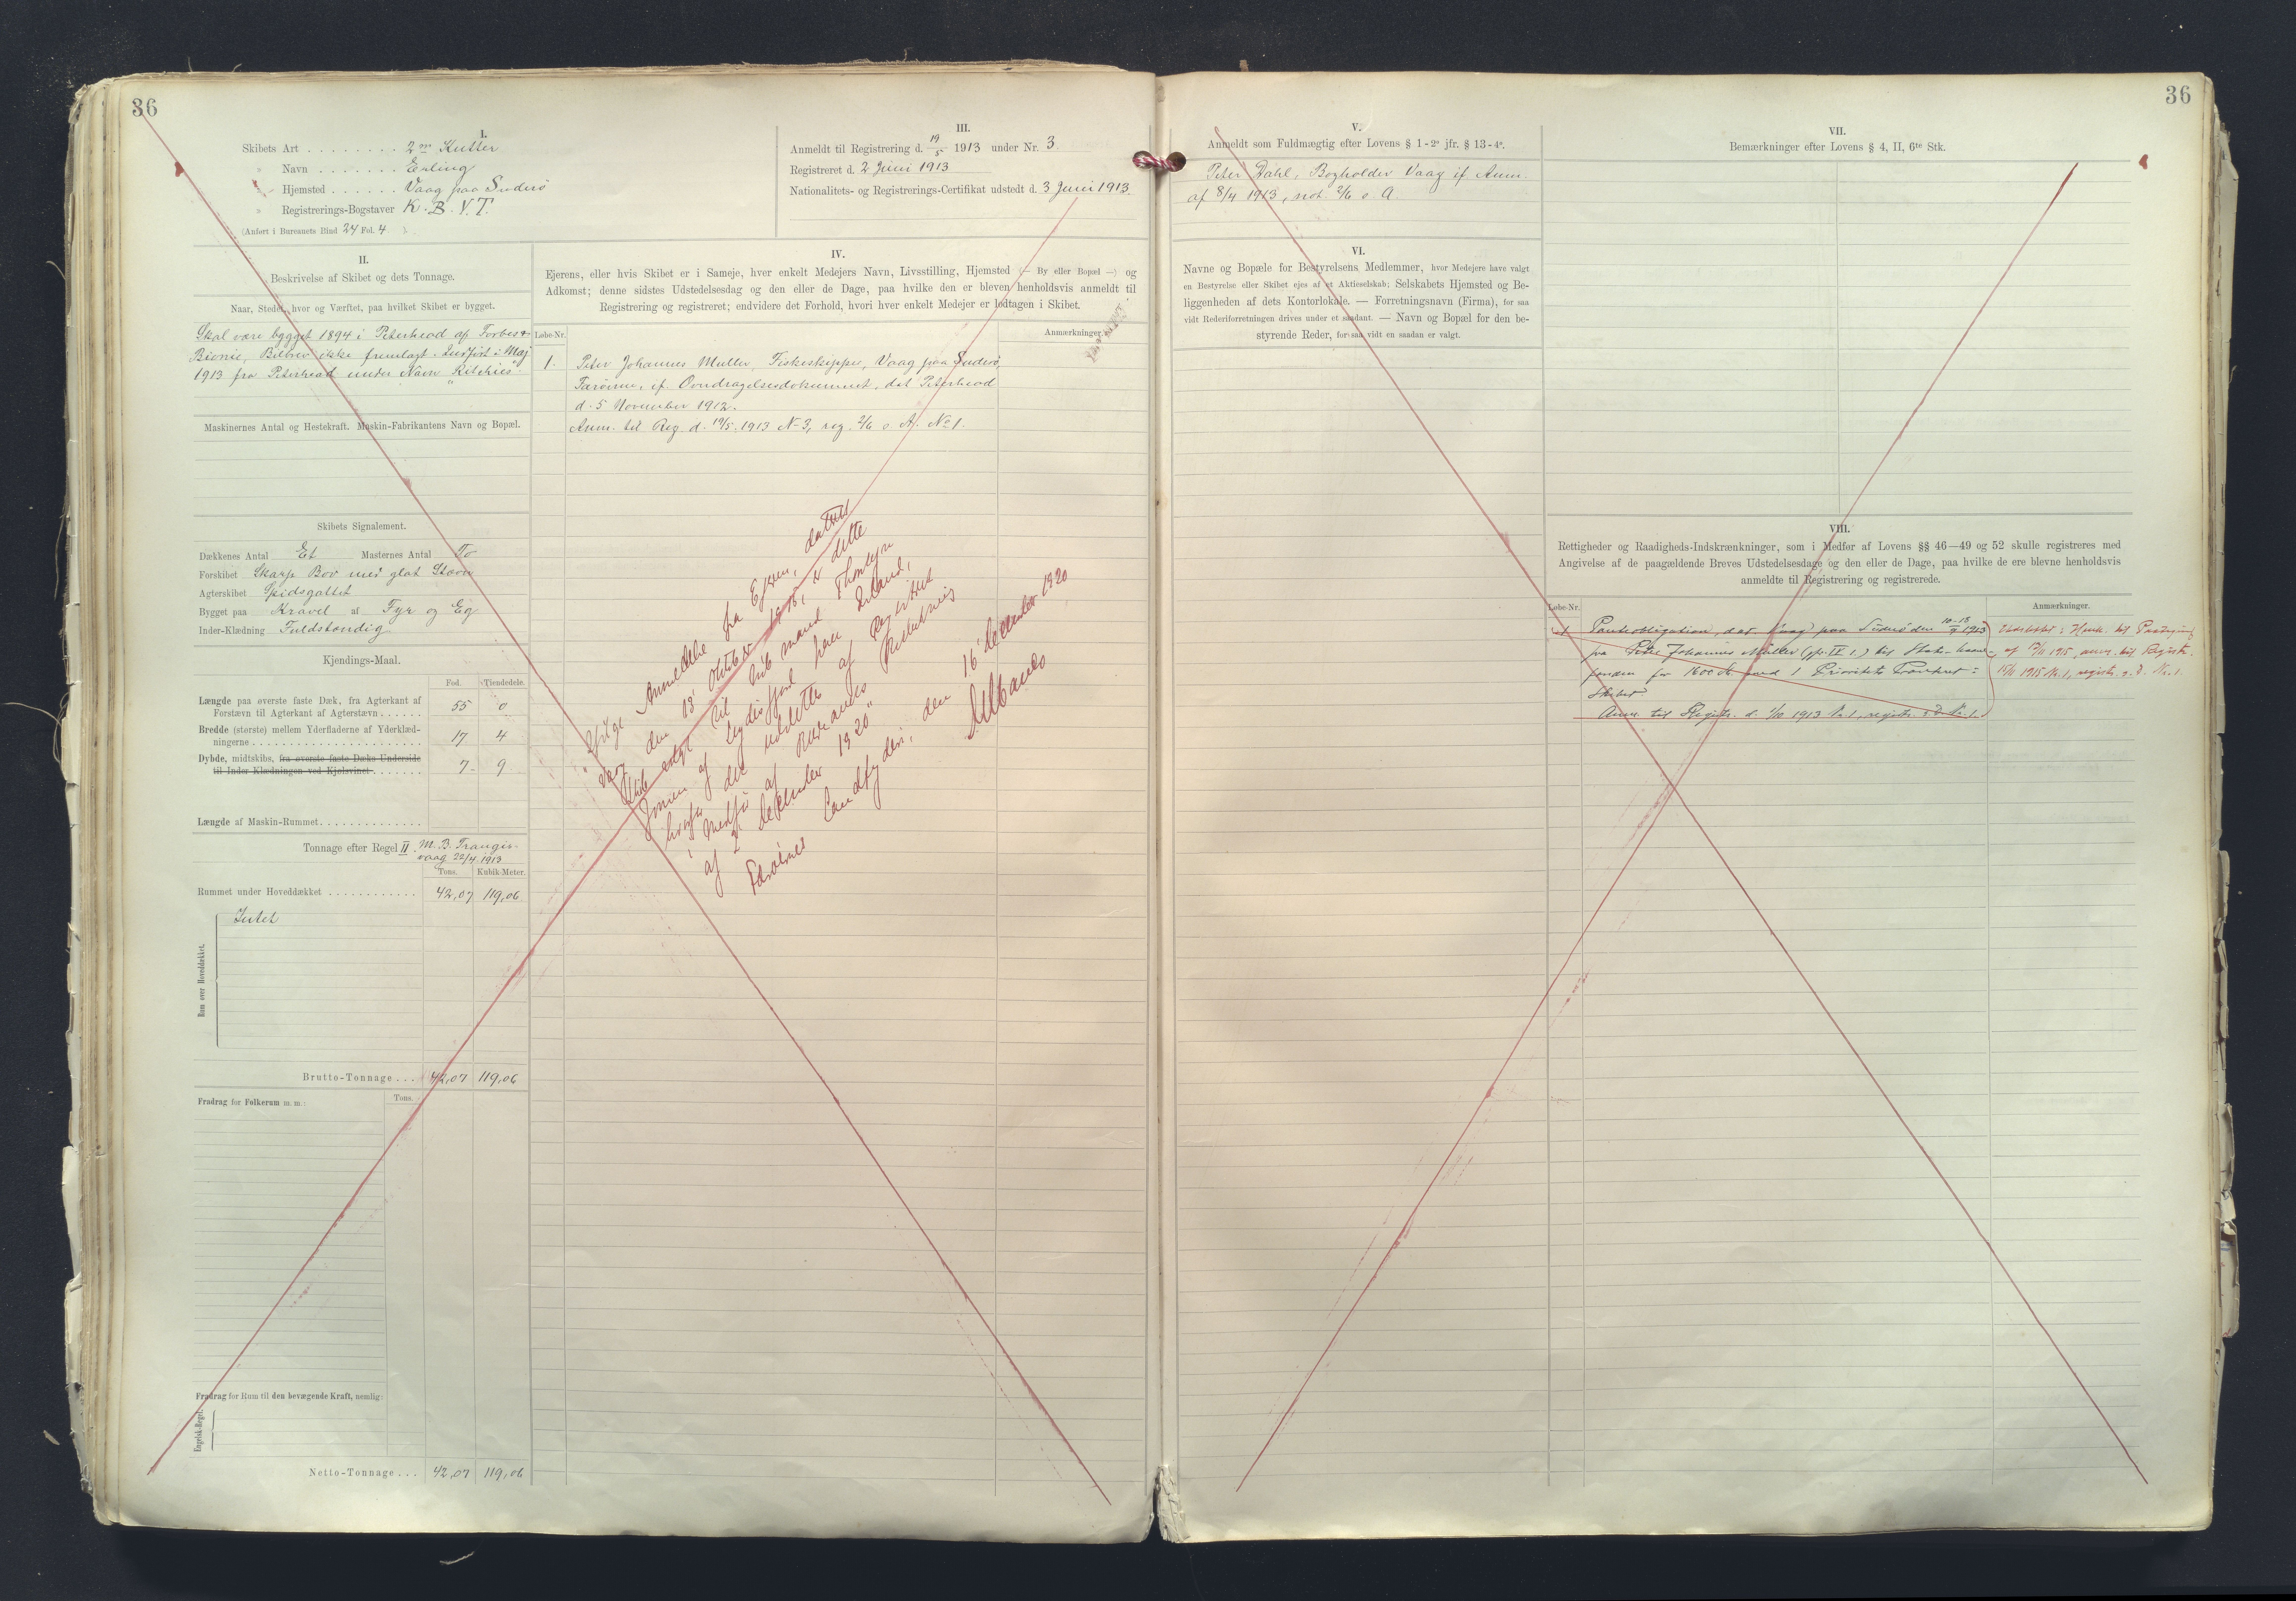 36
I.
Skibets Art ........ 2 m. Kutter
" Navn ....... Erling
" Hjemsted ...... Vaag paa Suderø
" Registrerings-Bogstaver K. B. V. T.
(Anført i Bureauets Bind 24 Fol. 4 )
II.
Beskrivelse af Skibet og dets Tonnage.
Naar, Stedet, hvor og Værftet, paa hvilket Skibet er bygget.
Skal være bygget 1894 i Peterhead af Forbes &
Birnie, Bilbrev ikke fremlagt. Indført i Maj
1913 fra Peterhead under Navn "Ritchies".
Maskinernes Antal og Hestekraft. Maskin-Fabrikantens Navn og Bopæl.
Skibets Signalement.
Dækkenes Antal Et Masternes Antal To
Forskibet Skarp Bov med glat Stævn
Agterskibet Spidsgattet
Bygget paa Kravel af Fyr og Eg
Inder-Klædning Fuldstændig
Kjendings-Maal.
Fod. Tiendedele.
Længde paa øverste faste Dæk, fra Agterkant af
Forstævn til Agterkant af Agterstævn ...... 55 0
Bredde (største) mellem Yderfladerne af Yderklæd-
ningerne ...................... 17 4
Dybde, midtskibs, fra øverste faste Dæks Underside
til Inder-Klædningen ved Kjølsvinet ....... 7 9
Længde af Maskin-Rummet..............
Tonnage efter Regel II. M. B. Trangis-
vaag 22/4 1913
Tons. Kubik-Meter.
Rummet under Hoveddækket ............ 42,07 119,06
Rum over Hoveddækket.
Intet
Brutto-Tonnage ... 42,07 119,06
Fradrag for Folkerum m. m.:
Tons.
Fradrag for Rum til den bevægende Kraft, nemlig:
Engelsk-Regel.
Netto-Tonnage ... 42,07 119,06
III.
Anmeldt til Registrering d. 19/5 1913 under Nr. 3
Registreret d. 2 Juni 1913
Nationalitets- og Registrerings-Certifikat udstedt d. 3 Juni 1913.
IV.
Ejerens, eller hvis Skibet er i Sameje, hver enkelt Medejers Navn, Livsstilling, Hjemsted (— By eller Bopæl —) og
Adkomst; denne sidstes Udstedelsesdag og den eller de Dage, paa hvilke den er bleven henholdsvis anmeldt til
Registrering og registreret; endvidere det Forhold, hvori hver enkelt Medejer er lodtagen i Skibet.
Løbe-Nr. Anmærkninger.
1. Peter Johannes Müller Fiskeskipper, Vaag paa Suderø,
Færøerne, if. Overdragelsesdokument, dat. Peterhead
d. 5 November 1912.
Anm. til Reg. d. 19/5 1913 No 3, reg. 2/6 s. A. No 1.
Ifølge Anmeldelse fra Ejeren, dateret
Vaag den 18' Oktober 1918, er dette
Skib solgt til Købmand Thorleifur
Jonsson af Seydisfjord paa Island,
hvorfor det udslettes af Registret
i Medfør af Bureauets Beslutning
af 2' December 1920"
Færøernes Landfogderi, den 16' December 1920
36
V.
Anmeldt som Fuldmægtig efter Lovens § 1-2° jfr. § 13-4°.
Peter Dahl, Bogholder Vaag if Anm.
af 8/4 1913, not. 2/6 s. A.
VI.
Navne og Bopæle for Bestyrelsens Medlemmer, hvor Medejere have valgt
en Bestyrelse eller Skibet ejes af et Aktieselskab; Selskabets Hjemsted og Be-
liggenheden af dets Kontorlokale. — Forretningsnavn (Firma), for saa
vidt Rederiforretningen drives under et saadant. — Navn og Bopæl for den be-
styrende Reder, for saa vidt en saadan er valgt.
VII.
Bemærkninger efter Lovens § 4, II, 6te Stk.
VIII.
Rettigheder og Raadigheds-Indskrænkninger, som i Medfør af Lovens §§ 46—49 og 52 skulle registreres med
Angivelse af de paagældende Breves Udstedelsesdage og den eller de Dage, paa hvilke de ere blevne henholdsvis
anmeldte til Registrering og registrerede.
Løbe-Nr. Anmærkninger.
1 Panteobligation, dat. Vaag paa Suderø den 10-18/9 1913
fra Peter Johannes Müller (jfr. IV 1.) til Stats-Laane-
fonden for 1600 Kr. med 1 Prioritets Panteret i
Skibet.
Anm. til Registr. d. 1/10 1913 No 1, registr. s. D. No 1.
Udslettet i Henh. til Paategning
af 17/11 1915, anm. til Registr.
15/11 1915 No. 1, registr. s. D. No. 1.